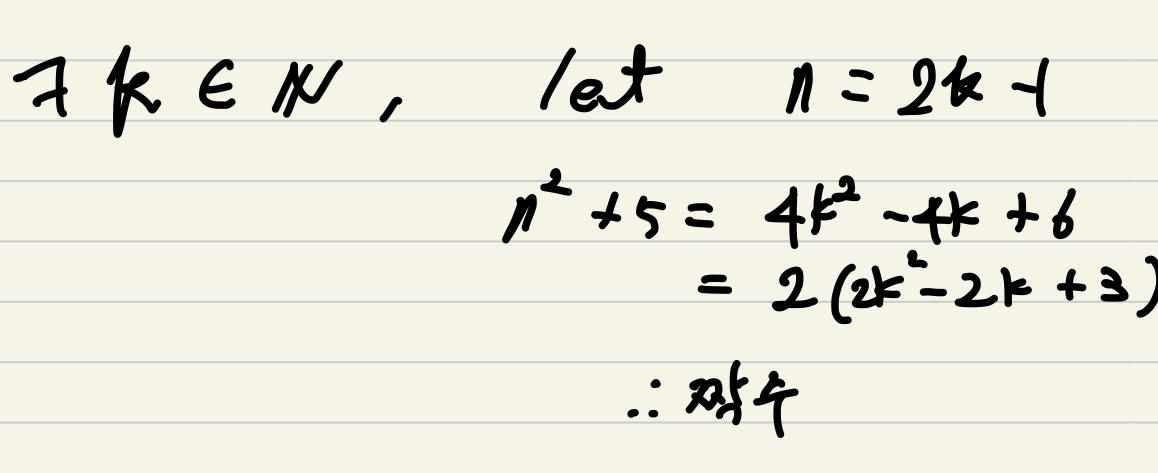 ∃ k ∈ ℕ, let n = 2k - 1
n² + 5 = 4k² - 4k + 6
= 2(2k² - 2k + 3)
∴ 짝수